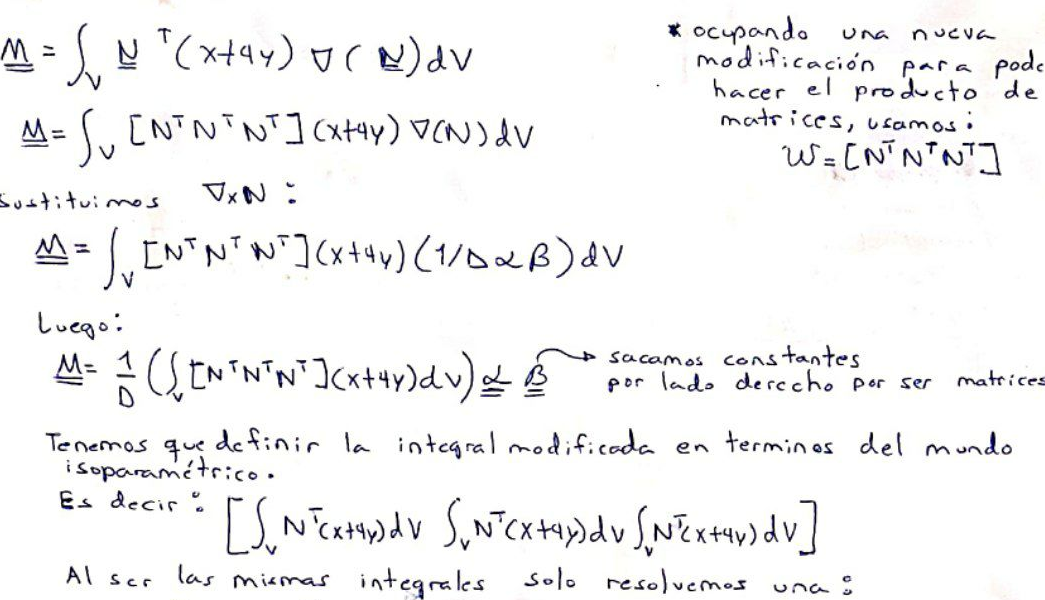 M = ∫_V N^T (x+4y) ∇( N) dV
* ocupando una nueva
modificación para pode
hacer el producto de
matrices, usamos:
W = [N^T N^T N^T]
M = ∫_V [N^T N^T N^T] (x+4y) ∇(N) dV
Sustituimos ∇xN :
M = ∫_V [N^T N^T N^T] (x+4y) (1/D α β) dV
Luego:
M = 1/D (∫_V [N^T N^T N^T] (x+4y) dV) α β → sacamos constantes
por lado derecho por ser matrices
Tenemos que definir la integral modificada en terminos del mundo
isoparamétrico.
Es decir : [∫_V N^T (x+4y) dV ∫_V N^T (x+4y) dV ∫_V N^T (x+4y) dV]
Al ser las mismas integrales solo resolvemos una :